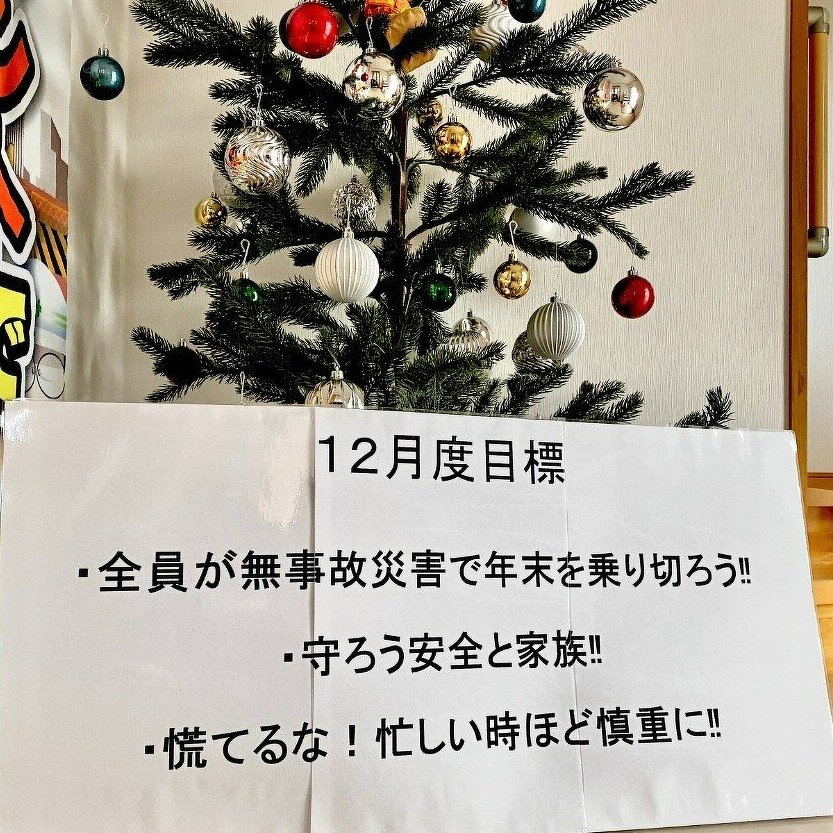 12月度目標
・全員が無事故災害で年末を乗り切ろう!!
・守ろう安全と家族!!
・慌てるな！忙しい時ほど慎重に!!